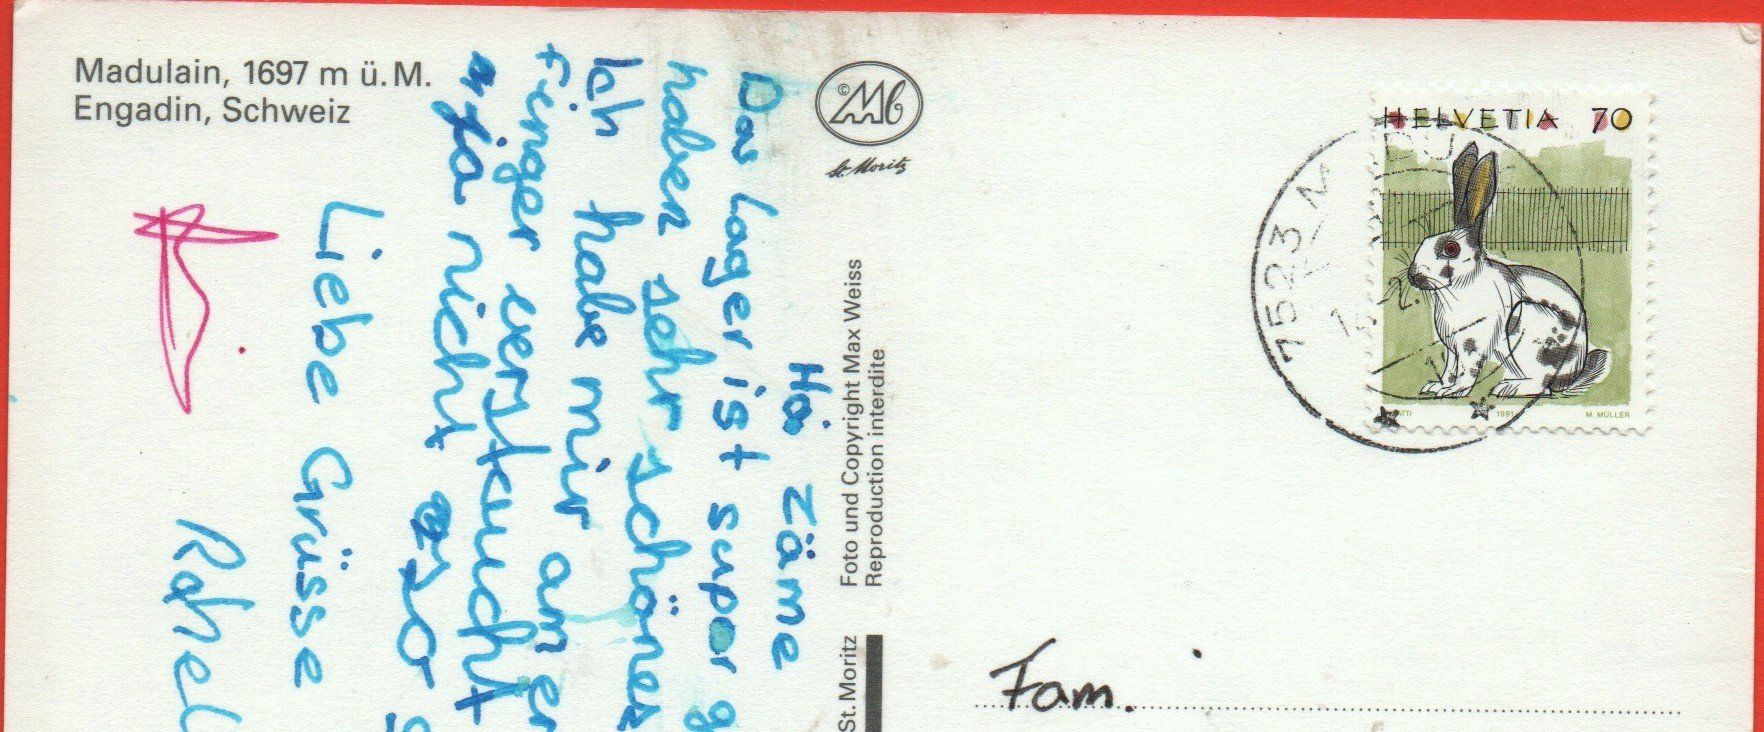 Madulain, 1697 m ü. M.
Engadin, Schweiz
Hoi Zäme
Das Lager ist super g
haben sehr schönes
Ich habe mir am er
Finger verstaucht
ja nicht so
Liebe Grüsse
Rahel
St. Moritz
Foto und Copyright Max Weiss
Reproduction interdite
St. Moritz
HELVETIA 70
1991
M. MÜLLER
7523 M
Fam.